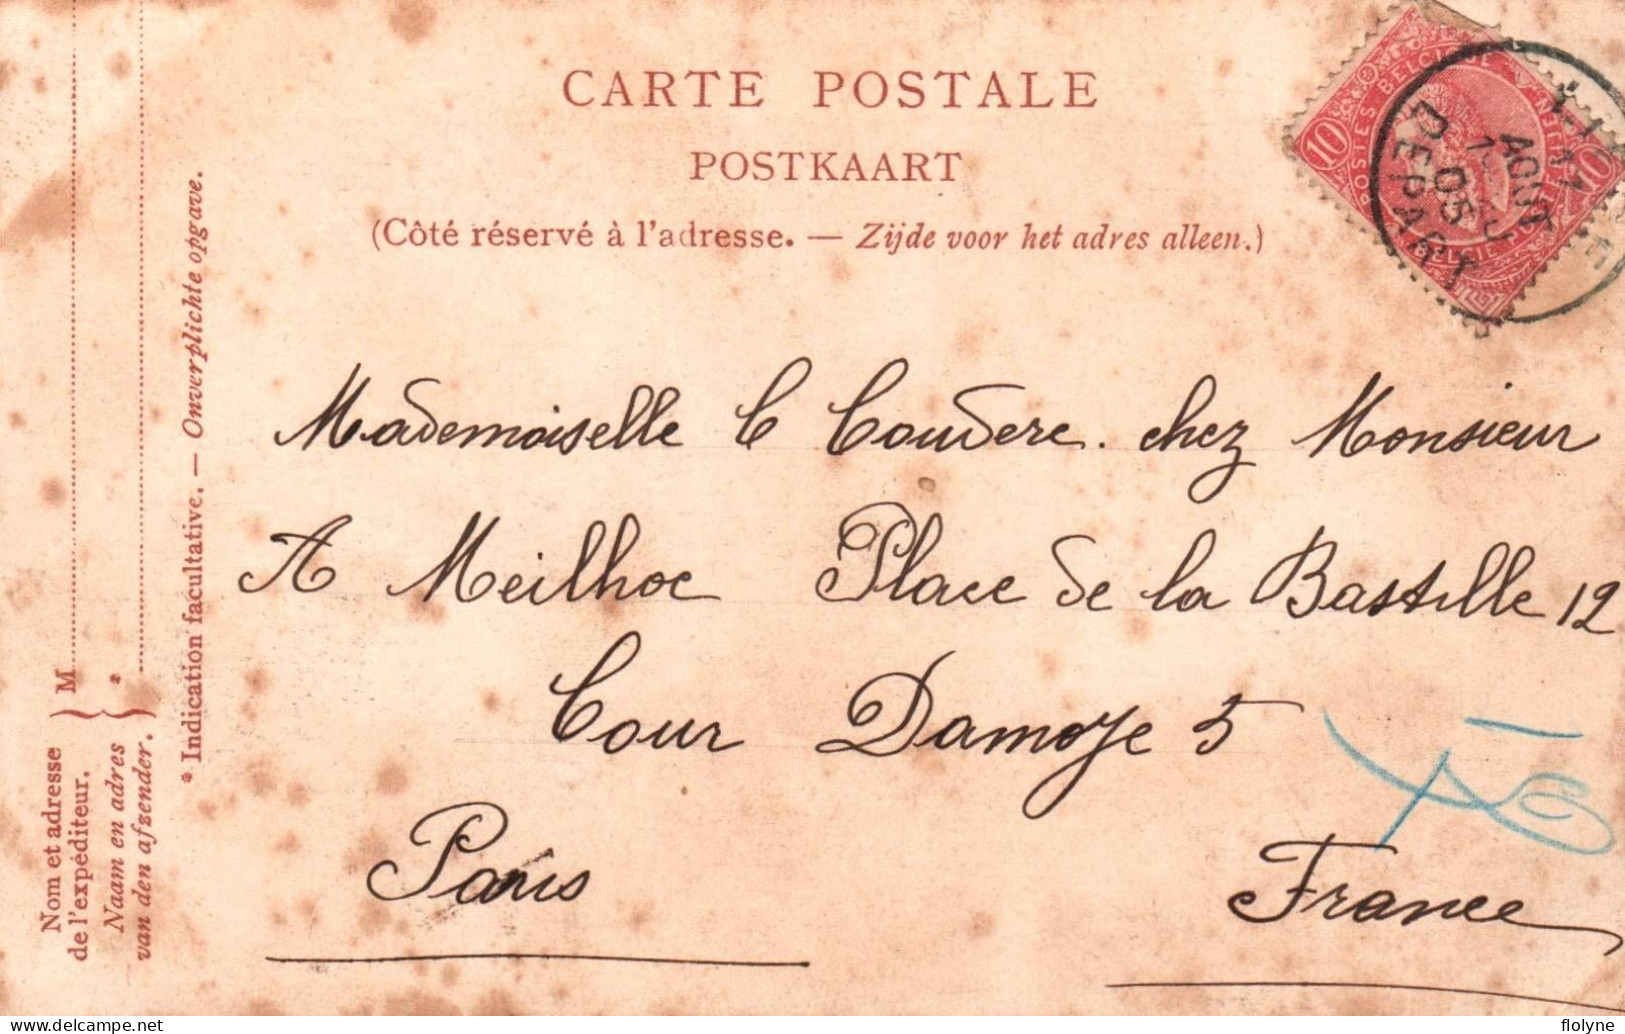 CARTE POSTALE
POSTKAART
(Côté réservé à l'adresse. — Zijde voor het adres alleen.)
POSTES BELGIQUE
10
10
11
AOUT
05
DEPART
Mademoiselle C Coudere. chez Monsieur
A Meilhoc Place de la Bastille 12
Cour Damoye 5
Paris
France
M
*
Nom et adresse
de l'expéditeur.
Naam en adres
van den afzender.
* Indication facultative. — Onverplichte opgave.
flolyne